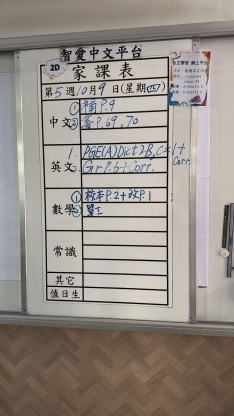 智愛中文平台
2D
家課表
第5週10月9日(星期四)
中文
①補P.9
②書P.69,70
英文
1. PGE(A)Dict 2B, Cx1+
Corr.
2. Gr P.6+Corr.
數學
①校本P.2+改P.1
②
常識
其它
值日生